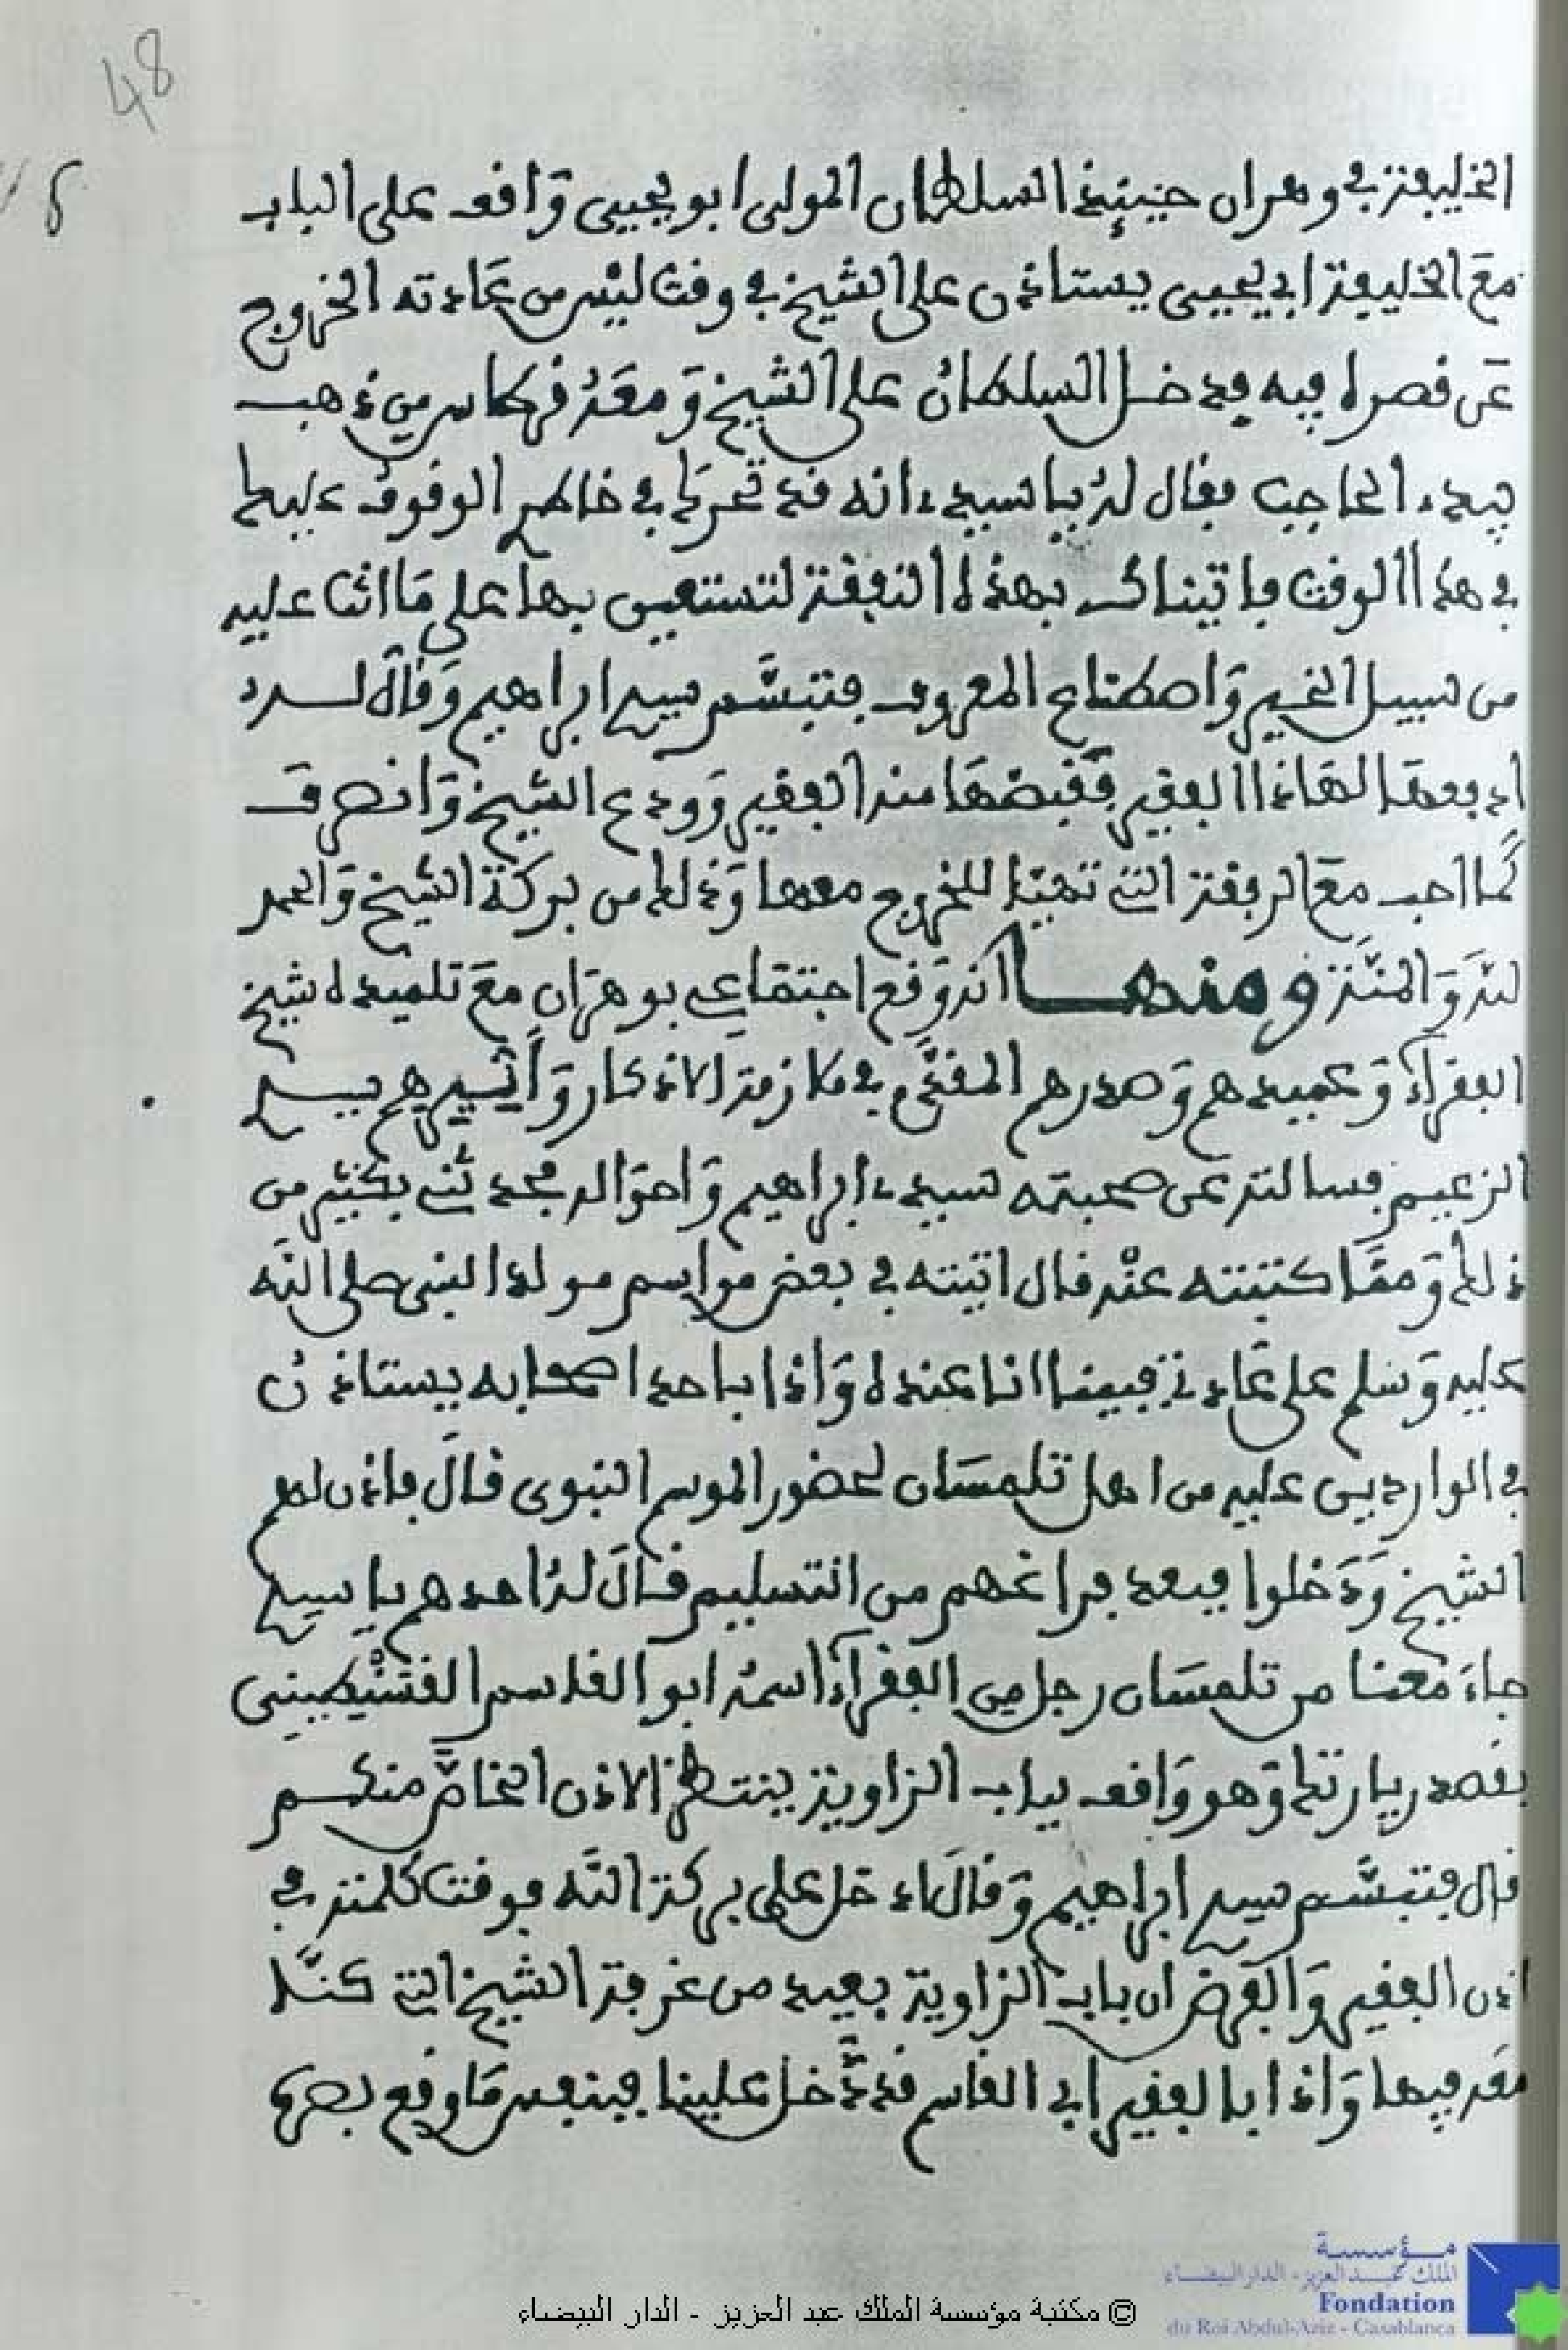 48
الخليفة في وهران حينئذ السلطان المولى ابو يحيى وَاقف على الباب
معَ الخليفة ابي يحيى يستاذن على الشيخ في وقت ليْس من عَادته الخروج
عَن قصره فيه فدخل السلطان علَى الشيخ وَمعَهُ قرطاس من ذهب
بيد الحاجب فقال لهُ يا سيدي انه قد تحركَ في خاطري الوقوف عليك
في هذا الوقت فاتيناك بهذه النفقة لتستعين بها على مَا انت عليه
من سبيل الخير وَاصطناع المعروف فتبسَّم سيدي ابراهيم وَقالَ لــه
ادفعها لهَاذا الفقير فقبضهَا منه الفقير وَودع الشيخ وَانصرفَ
كَما احب معَ الرفقة التي تهيَّا للخروج معها وَذلك من بركة الشيخ وَالحمد
لله وَالمنَّة ومنهــا انه وَقع اجتماعي بوهرَان معَ تلميذه شيخ
الفقرآء وَعميدهم وَصدرهم المقدَّم في ملازمة الاذكار وَأثيرهم سيدي
الزعيم فسالته عَن صحبته سيدي ابراهيم وَاحوَاله فحدثني بكثير من
ذلك وَممَّا كتبته عنْه قال اتيته في بعض مواسم مولد النبي صلى اللَّه
عليه وَسَلم على عَادتي فبينما انا عنده وَاذا باحد اصحابه يستاذنُ
في الواردين عليه من اهل تلمسَان لحضور الموسم النبوي قالَ فاذن لهم
الشيخ وَدَخلوا فبعد فراغهم من التسليم قالَ لهُ احدهم يا سيدي
جاءَ معَنا من تلمسَان رجل من الفقرآء اسمهُ ابو القاسم القسَنْطيني
بقصد زيارتك وَهو وَاقف بباب الزاوية ينتظر الاذن الخاصَّ منكم
قال فتبسَّم سيدي ابراهيم وَقالَ ادخل على بركة اللَّه فوقت كلمته في
اذن الفقير وَالفرض ان باب الزاوية بعيد من غرفة الشيخ التي كنَّا
معَه فيها وَاذا بالفقير ابي القاسم قد دَّخل علينا فبنفس مَا وقع بصري
مؤسسة
الملك عبد العزيز - الدار البيضاء
Fondation
du Roi Abdul-Aziz - Casablanca
© مكتبة مؤسسة الملك عبد العزيز - الدار البيضاء